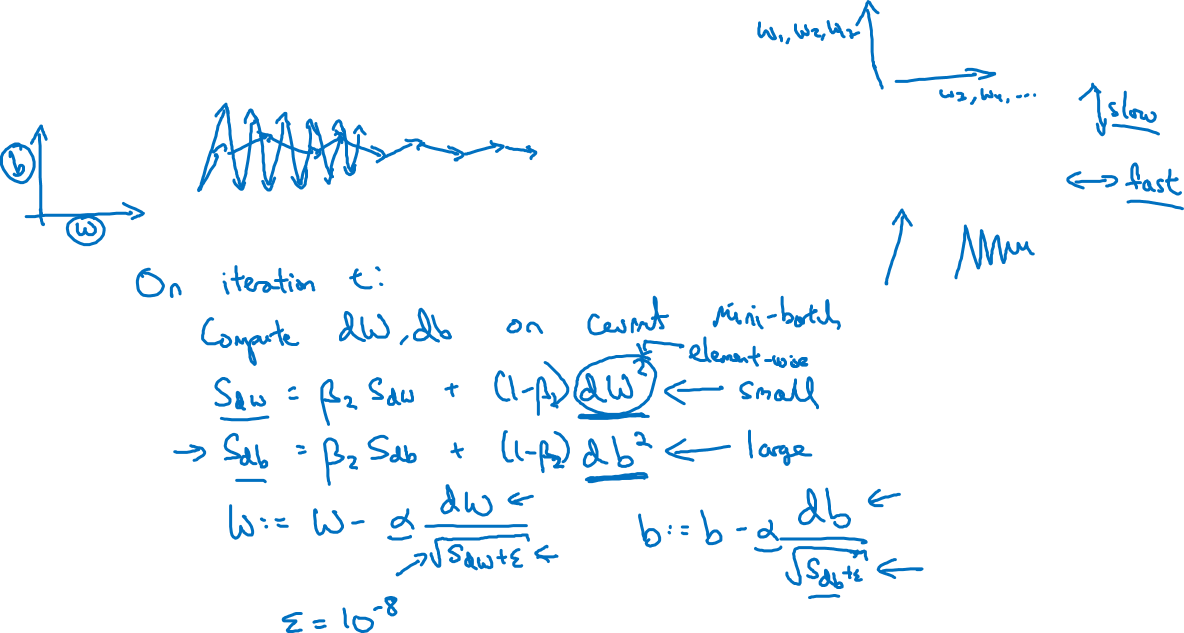 w₁, w₂, w₂
w₂, w₄, ...
slow
fast
b
w
On iteration t:
Compute dW, db on current mini-batch
element-wise
S_dw = β₂ S_dw + (1-β₂) dW² ← small
→ S_db = β₂ S_db + (1-β₂) db² ← large
W := W - α dW / √(S_dw + ε) ←
b := b - α db / √(S_db + ε) ←
ε = 10⁻⁸